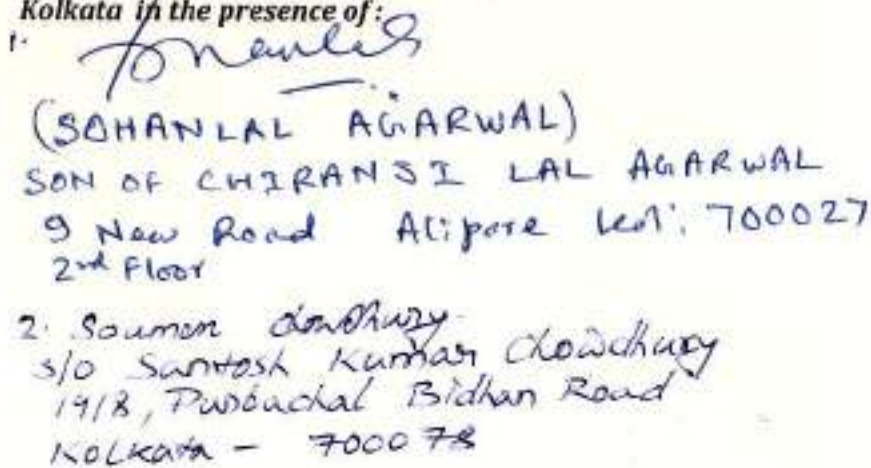 Kolkata in the presence of:
1.
(SOHANLAL AGARWAL)
SON OF CHIRANJI LAL AGARWAL
9 New Road Alipore Kol. 700027
2nd Floor
2. Soumen Chowdhury
S/O Santosh Kumar Chowdhury
19/B, Purbachal Bidhan Road
Kolkata - 700078